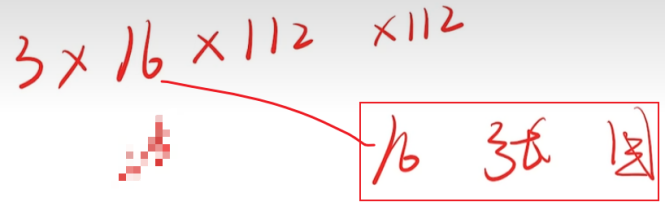 3×16×112 ×112
16 张 图